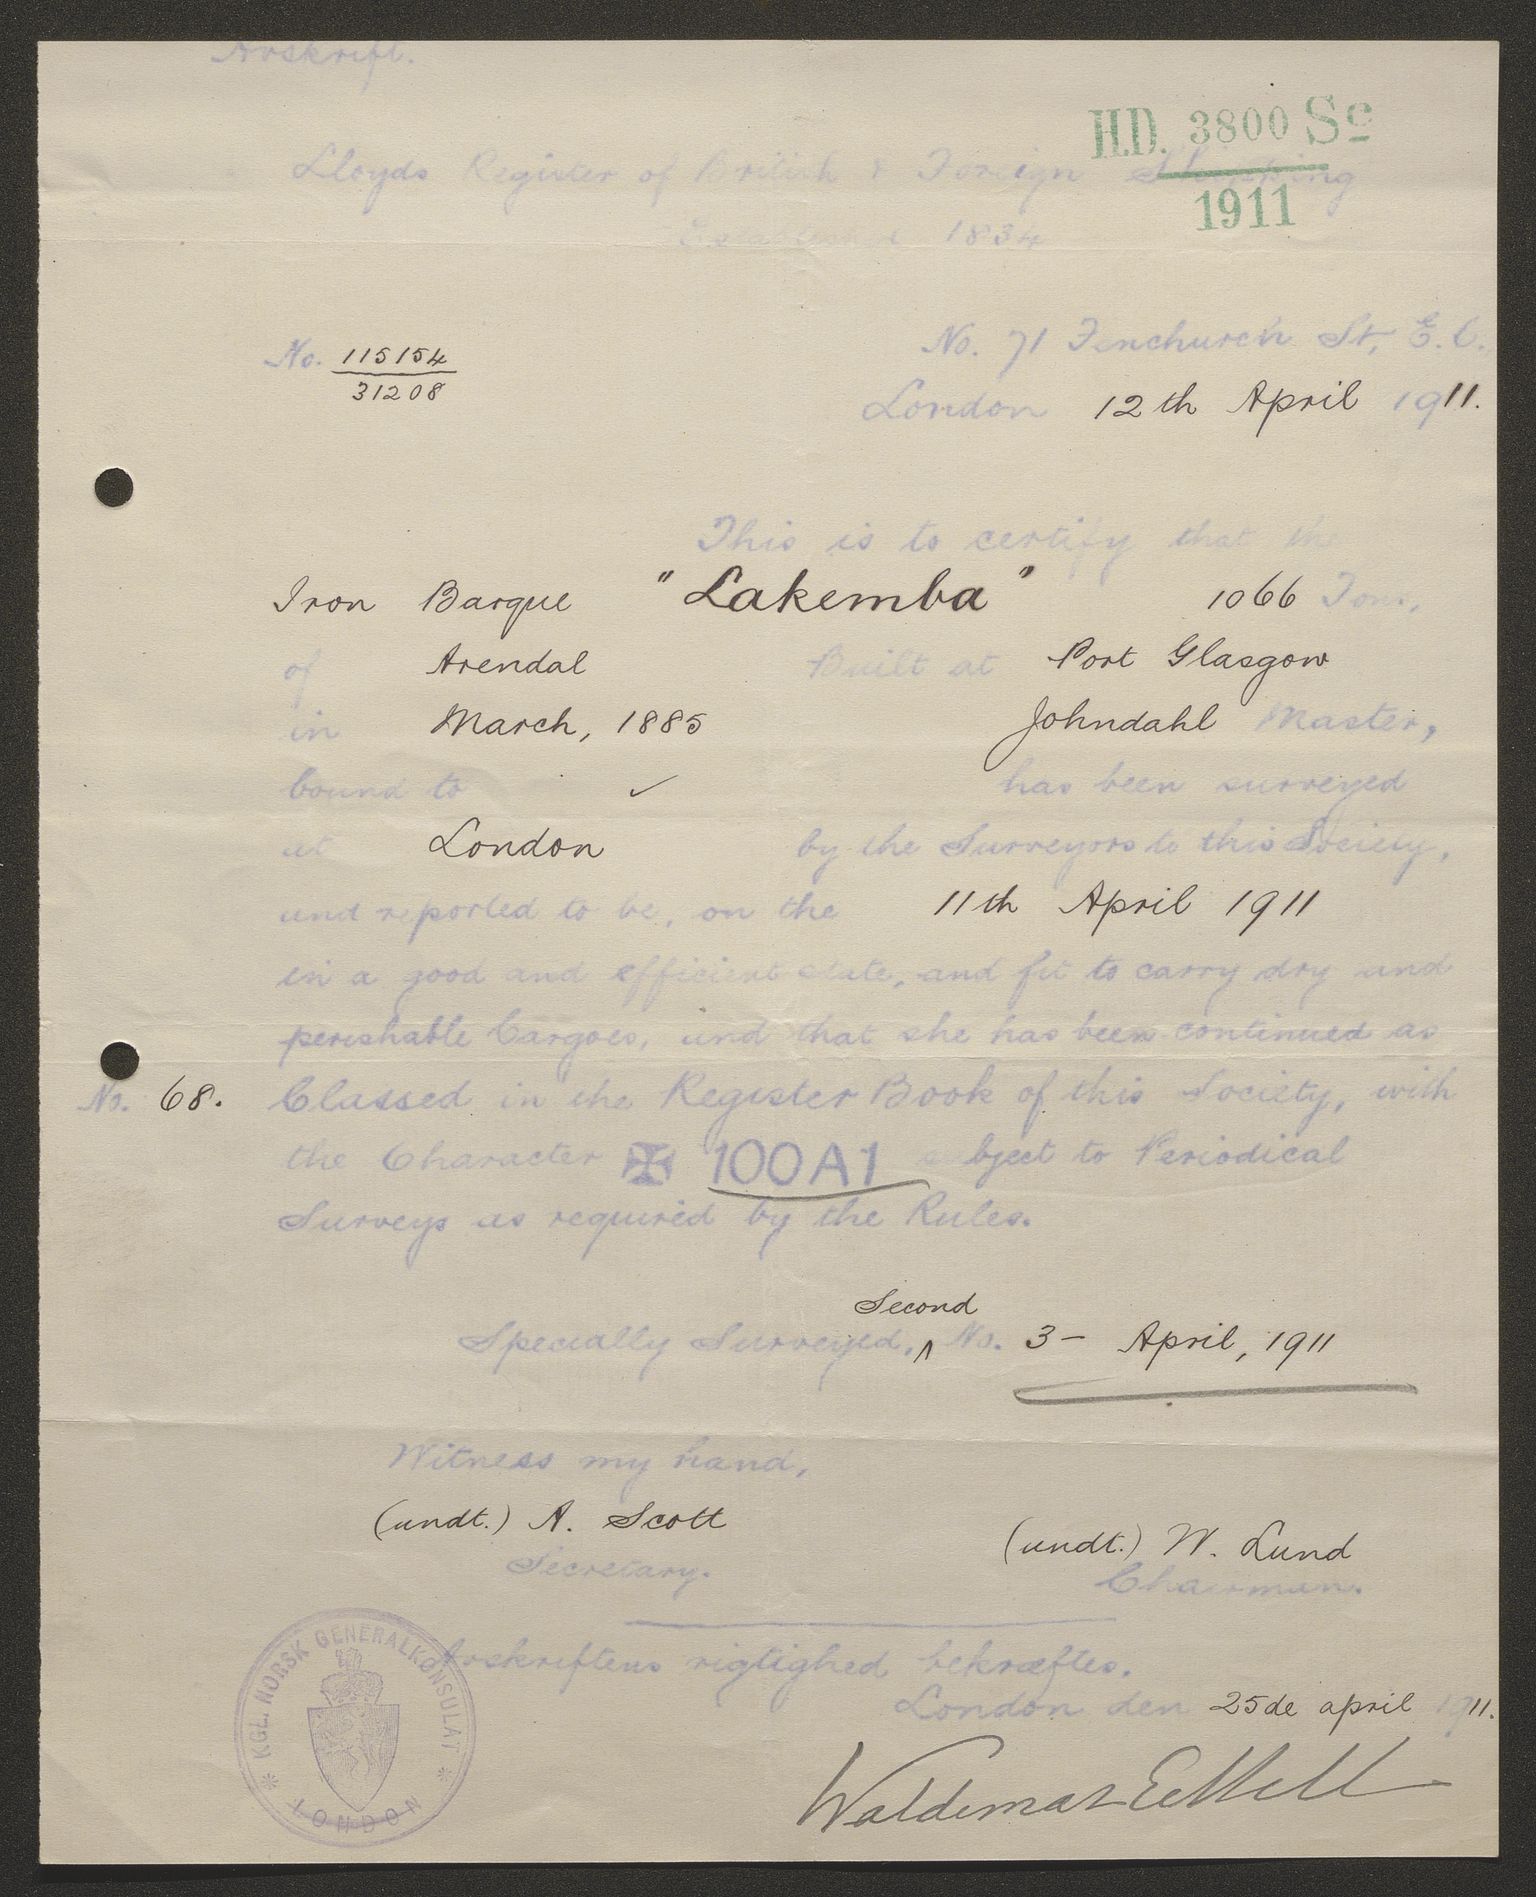 Avskrift.
H.D. 3800 Sc
1911
Lloyds Register of British & Foreign Shipping
Established 1834
No. 71 Fenchurch St, E.C.
No. 115154
31208
London 12th April 1911.
This is to certify that the
Iron Barque "Lakemba" 1066 Tons,
of Arendal Built at Port Glasgow
in March, 1885 Johndahl Master,
bound to ✓ has been surveyed
at London by the Surveyors to this Society,
and reported to be, on the 11th April 1911
in a good and efficient state, and fit to carry dry and
perishable Cargoes, and that she has been continued as
No. 68. Classed in the Register Book of this Society, with
the Character ✠ 100A1 subject to Periodical
Surveys as required by the Rules.
Second
Specially Surveyed, ʌ No. 3 – April, 1911
Witness my hand,
(undt.) A. Scott
(undt.) W. Lund
Secretary.
Chairman.
Avskriftens rigtighed bekræftes.
London den 25de april 1911.
Waldemar Eckell
KGL. NORSK GENERALKONSULAT
* LONDON *